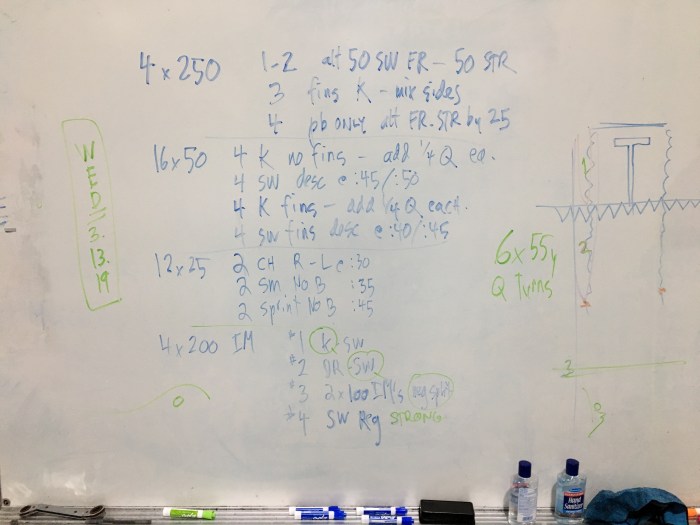 WED
3.
13.
19
4 x 250 1-2 alt 50 SW FR - 50 STR
3 fins K - mix sides
4 pb only alt FR-STR by 25
16 x 50 4 K no fins - add 1/4 Q ea.
4 SW desc @ :45/:50
4 K fins - add 1/4 Q each.
4 SW fins desc @ :40/:45
12 x 25 2 CH R-L @ :30
2 Sm No B :35
2 Sprint No B :45
4 x 200 IM #1 K-SW
#2 DR-SW
#3 2x100 IM's neg split
#4 SW Reg STRONG
6 x 55y
Q Turns
1
2
3
Hand
Sanitizer